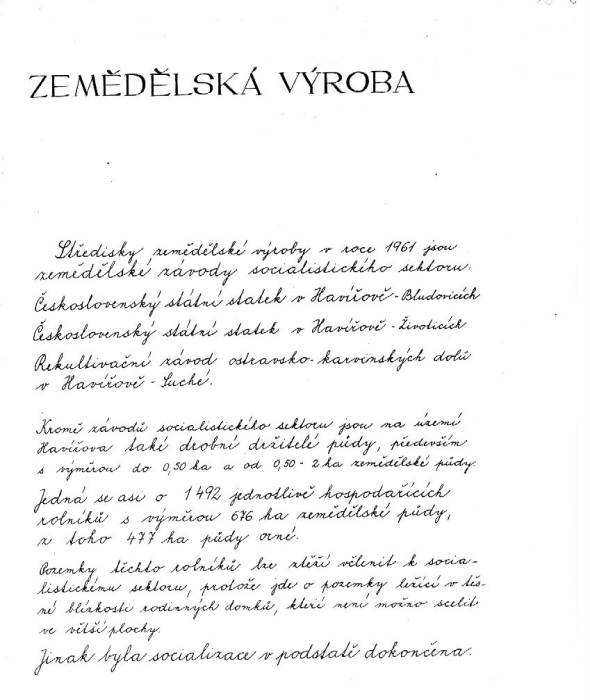 ZEMĚDĚLSKÁ VÝROBA
Středisky zemědělské výroby v roce 1961 jsou
zemědělské závody socialistického sektoru:
Československý státní statek v Havířově - Bludovicích
Československý státní statek v Havířově - Životicích
Rekultivační závod ostravsko-karvinských dolů
v Havířově - Suché.
Kromě závodů socialistického sektoru jsou na území
Havířova také drobní držitelé půdy, především
s výměrou do 0,50 ha a od 0,50 - 2 ha zemědělské půdy.
Jedná se asi o 1492 jednotlivě hospodařících
rolníků s výměrou 676 ha zemědělské půdy,
z toho 477 ha půdy orné.
Pozemky těchto rolníků lze ztěží včlenit k socia-
listickému sektoru, protože jde o pozemky ležící v těs-
né blízkosti rodinných domků, které není možno scelit
ve větší plochy.
Jinak byla socializace v podstatě dokončena.